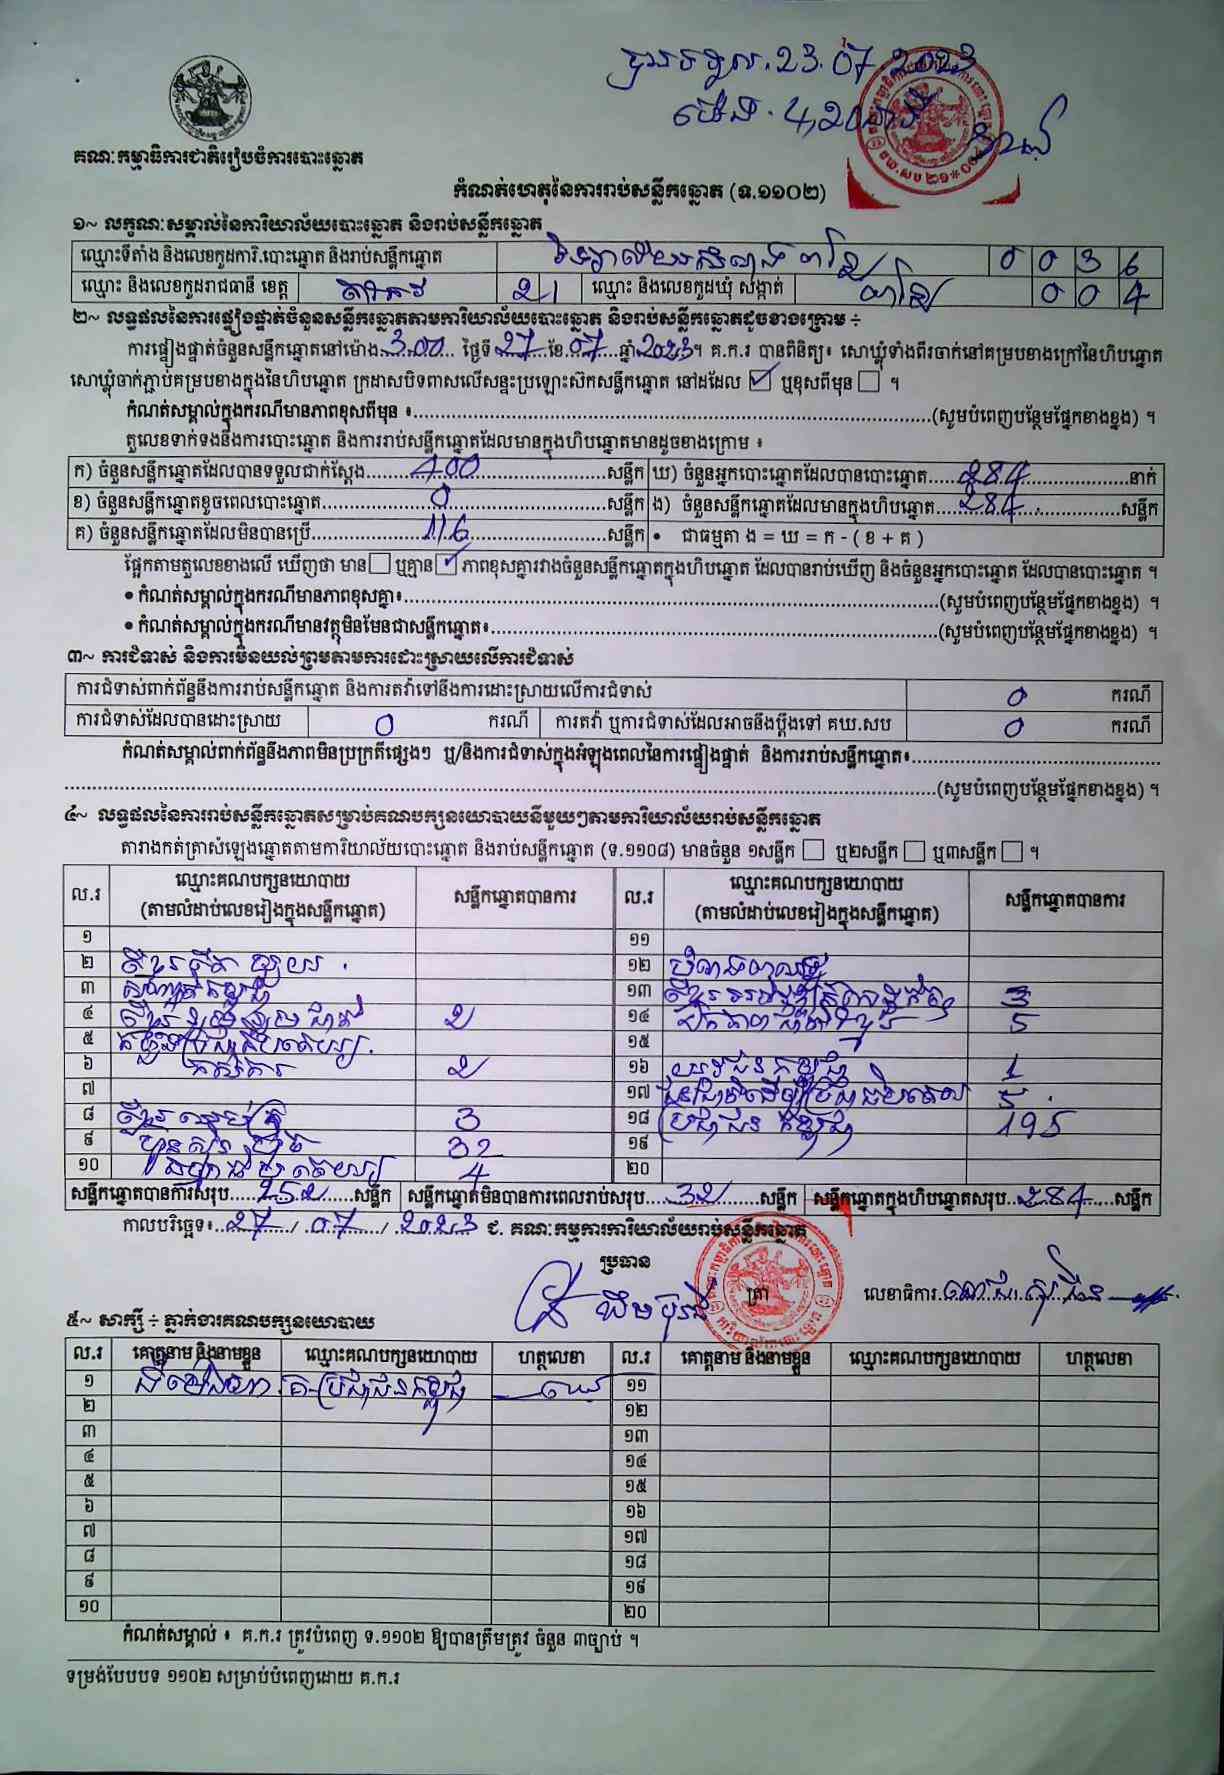 23.07.2023
ម៉ោង . 4,20នាទី
គណៈកម្មាធិការជាតិរៀបចំការបោះឆ្នោត
កំណត់ហេតុនៃការរាប់សន្លឹកឆ្នោត (ទ.១១០២)
១~ លក្ខណៈសម្គាល់នៃការិយាល័យបោះឆ្នោត និងរាប់សន្លឹកឆ្នោត
ឈ្មោះទីតាំង និងលេខកូដការិ.បោះឆ្នោត និងរាប់សន្លឹកឆ្នោត 0 0 3 6
ឈ្មោះ និងលេខកូដរាជធានី ខេត្ត តាកែវ 2 1 ឈ្មោះ និងលេខកូដឃុំ សង្កាត់ 0 0 4
២~ លទ្ធផលនៃការផ្ទៀងផ្ទាត់ចំនួនសន្លឹកឆ្នោតតាមការិយាល័យបោះឆ្នោត និងរាប់សន្លឹកឆ្នោតដូចខាងក្រោម ÷
ការផ្ទៀងផ្ទាត់ចំនួនសន្លឹកឆ្នោតនៅម៉ោង...3.00... ថ្ងៃទី 27 ខែ 07 ឆ្នាំ 2023។ គ.ក.រ បានពិនិត្យ៖ សោឃ្លុំទាំងពីរចាក់នៅគម្របខាងក្រៅនៃហិបឆ្នោត
សោឃ្លុំចាក់ភ្ជាប់គម្របខាងក្នុងនៃហិបឆ្នោត ក្រដាសបិទពាសលើសន្ទះប្រឡោះស៊កសន្លឹកឆ្នោត នៅដដែល ☑ ឬខុសពីមុន ☐ ។
កំណត់សម្គាល់ក្នុងករណីមានភាពខុសពីមុន ៖...(សូមបំពេញបន្ថែមផ្នែកខាងខ្នង) ។
តួលេខទាក់ទងនឹងការបោះឆ្នោត និងការរាប់សន្លឹកឆ្នោតដែលមានក្នុងហិបឆ្នោតមានដូចខាងក្រោម ៖
ក) ចំនួនសន្លឹកឆ្នោតដែលបានទទួលជាក់ស្តែង...400...សន្លឹក ឃ) ចំនួនអ្នកបោះឆ្នោតដែលបានបោះឆ្នោត...284...នាក់
ខ) ចំនួនសន្លឹកឆ្នោតខូចពេលបោះឆ្នោត...0...សន្លឹក ង) ចំនួនសន្លឹកឆ្នោតដែលមានក្នុងហិបឆ្នោត...284...សន្លឹក
គ) ចំនួនសន្លឹកឆ្នោតដែលមិនបានប្រើ...116...សន្លឹក • ជាធម្មតា ង = ឃ = ក - ( ខ + គ )
ផ្អែកតាមតួលេខខាងលើ ឃើញថា មាន ☐ ឬគ្មាន ☑ ភាពខុសគ្នារវាងចំនួនសន្លឹកឆ្នោតក្នុងហិបឆ្នោត ដែលបានរាប់ឃើញ និងចំនួនអ្នកបោះឆ្នោត ដែលបានបោះឆ្នោត ។
• កំណត់សម្គាល់ក្នុងករណីមានភាពខុសគ្នា៖...(សូមបំពេញបន្ថែមផ្នែកខាងខ្នង) ។
• កំណត់សម្គាល់ក្នុងករណីមានវត្ថុមិនមែនជាសន្លឹកឆ្នោត៖...(សូមបំពេញបន្ថែមផ្នែកខាងខ្នង) ។
៣~ ការជំទាស់ និងការមិនយល់ព្រមតាមការដោះស្រាយលើការជំទាស់
ការជំទាស់ពាក់ព័ន្ធនឹងការរាប់សន្លឹកឆ្នោត និងការតវ៉ាទៅនឹងការដោះស្រាយលើការជំទាស់ 0 ករណី
ការជំទាស់ដែលបានដោះស្រាយ 0 ករណី ការតវ៉ា ឬការជំទាស់ដែលអាចនឹងប្តឹងទៅ គឃ.សប 0 ករណី
កំណត់សម្គាល់ពាក់ព័ន្ធនឹងភាពមិនប្រក្រតីផ្សេងៗ ឬ/និងការជំទាស់ក្នុងអំឡុងពេលនៃការផ្ទៀងផ្ទាត់ និងការរាប់សន្លឹកឆ្នោត៖...
...(សូមបំពេញបន្ថែមផ្នែកខាងខ្នង) ។
៤~ លទ្ធផលនៃការរាប់សន្លឹកឆ្នោតសម្រាប់គណបក្សនយោបាយនីមួយៗតាមការិយាល័យរាប់សន្លឹកឆ្នោត
តារាងកត់ត្រាសំឡេងឆ្នោតតាមការិយាល័យបោះឆ្នោត និងរាប់សន្លឹកឆ្នោត (ទ.១១០៨) មានចំនួន ១សន្លឹក ☐ ឬ២សន្លឹក ☐ ឬ៣សន្លឹក ☐ ។
ល.រ ឈ្មោះគណបក្សនយោបាយ សន្លឹកឆ្នោតបានការ ល.រ ឈ្មោះគណបក្សនយោបាយ សន្លឹកឆ្នោតបានការ
(តាមលំដាប់លេខរៀងក្នុងសន្លឹកឆ្នោត) (តាមលំដាប់លេខរៀងក្នុងសន្លឹកឆ្នោត)
១ ១១
២ ១២
៣ ១៣ 3
៤ 2 ១៤ 5
៥ ១៥
៦ កសិករ 2 ១៦ យុវជនកម្ពុជា 1
៧ ១៧ 5
៨ 3 ១៨ ប្រជាជនកម្ពុជា 195
៩ 32 ១៩
១០ 4 ២០
សន្លឹកឆ្នោតបានការសរុប...252...សន្លឹក សន្លឹកឆ្នោតមិនបានការពេលរាប់សរុប...32...សន្លឹក សន្លឹកឆ្នោតក្នុងហិបឆ្នោតសរុប...284...សន្លឹក
កាលបរិច្ឆេទ៖ 27 / 07 / 2023 ជ. គណៈកម្មការការិយាល័យរាប់សន្លឹកឆ្នោត
ប្រធាន
ត្រា លេខាធិការ
៥~ សាក្សី ÷ ភ្នាក់ងារគណបក្សនយោបាយ
ល.រ គោត្តនាម និងនាមខ្លួន ឈ្មោះគណបក្សនយោបាយ ហត្ថលេខា ល.រ គោត្តនាម និងនាមខ្លួន ឈ្មោះគណបក្សនយោបាយ ហត្ថលេខា
១ គ-ប្រជាជនកម្ពុជា ១១
២ ១២
៣ ១៣
៤ ១៤
៥ ១៥
៦ ១៦
៧ ១៧
៨ ១៨
៩ ១៩
១០ ២០
កំណត់សម្គាល់ ៖ គ.ក.រ ត្រូវបំពេញ ទ.១១០២ ឱ្យបានត្រឹមត្រូវ ចំនួន ៣ច្បាប់ ។
ទម្រង់បែបបទ ១១០២ សម្រាប់បំពេញដោយ គ.ក.រ